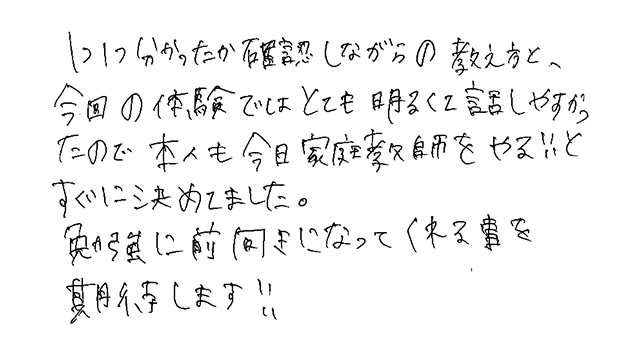 1つ1つ分かったか確認しながらの教え方と、
今回の体験ではとても明るくて話しやすかっ
たので本人も今日家庭教師をやる!!と
すぐに決めてました。
勉強に前向きになってくれる事を
期待します!!